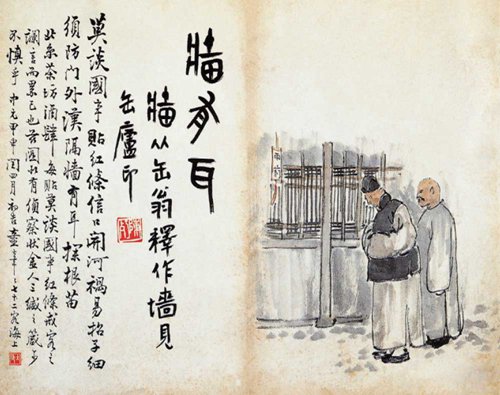 牆有耳
牆从缶翁釋作墻見
缶廬印
莫談國事貼紅條信口開河禍易招子細
須防門外漢隔牆有耳根苗
此茶坊酒肆每貼莫談國事紅條戒客之
言而累己也有偵察狀金人三緘之箴
不慎乎 甲申閏四月初吉年七十二客海上